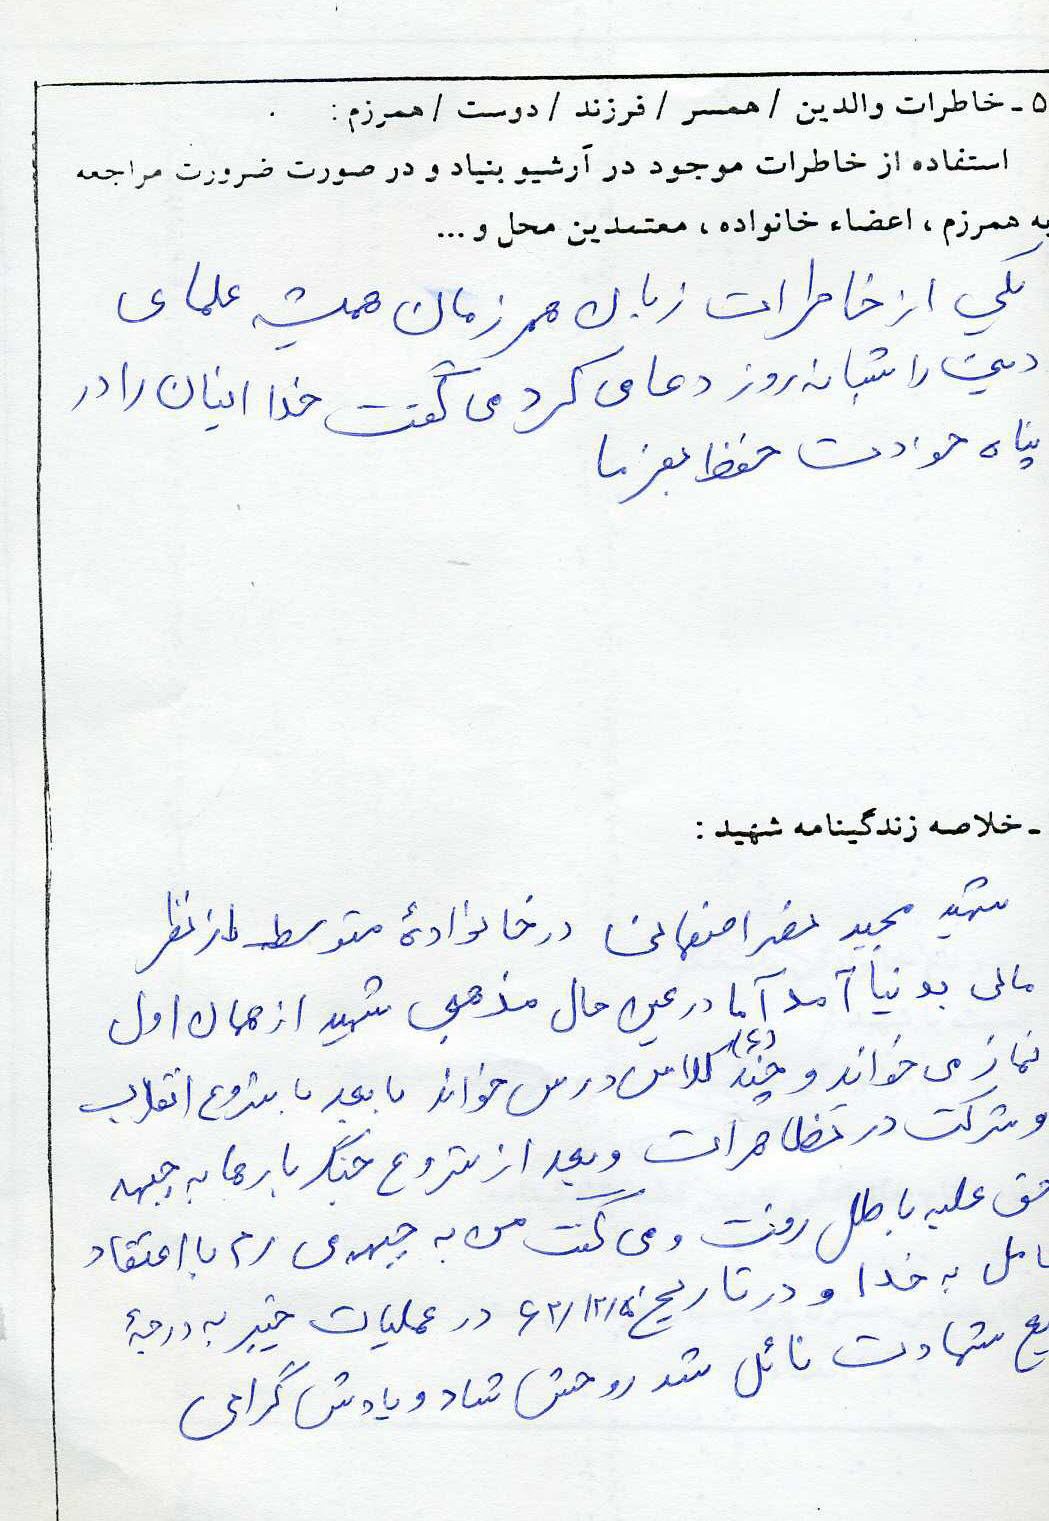 ۵ - خاطرات والدین / همسر / فرزند / دوست / همرزم :
استفاده از خاطرات موجود در آرشیو بنیاد و در صورت ضرورت مراجعه
به همرزم ، اعضاء خانواده ، معتمدین محل و ...
یکی از خاطرات زبان همرزمان همیشه علمای
دین را شبانه روز دعا می کرد می گفت خدا اینان را در
پناه حوادث حفظ بفرما
- خلاصه زندگینامه شهید :
شهید مجید اصفهانی در خانوادۀ متوسط از نظر
مالی بدنیا آمد اما در عین حال مذهبی شهید از همان اول
نماز می خواند و چند (۶) کلاس درس خواند با بعد با شروع انقلاب
و شرکت در تظاهرات و بعد از شروع جنگ بارها به جبهه
حق علیه باطل رفت و می گفت من به جبهه می روم با اعتقاد
کامل به خدا و در تاریخ ۶۲/۱۲/ در عملیات خیبر به درجۀ
شهادت نائل شد روحش شاد و یادش گرامی